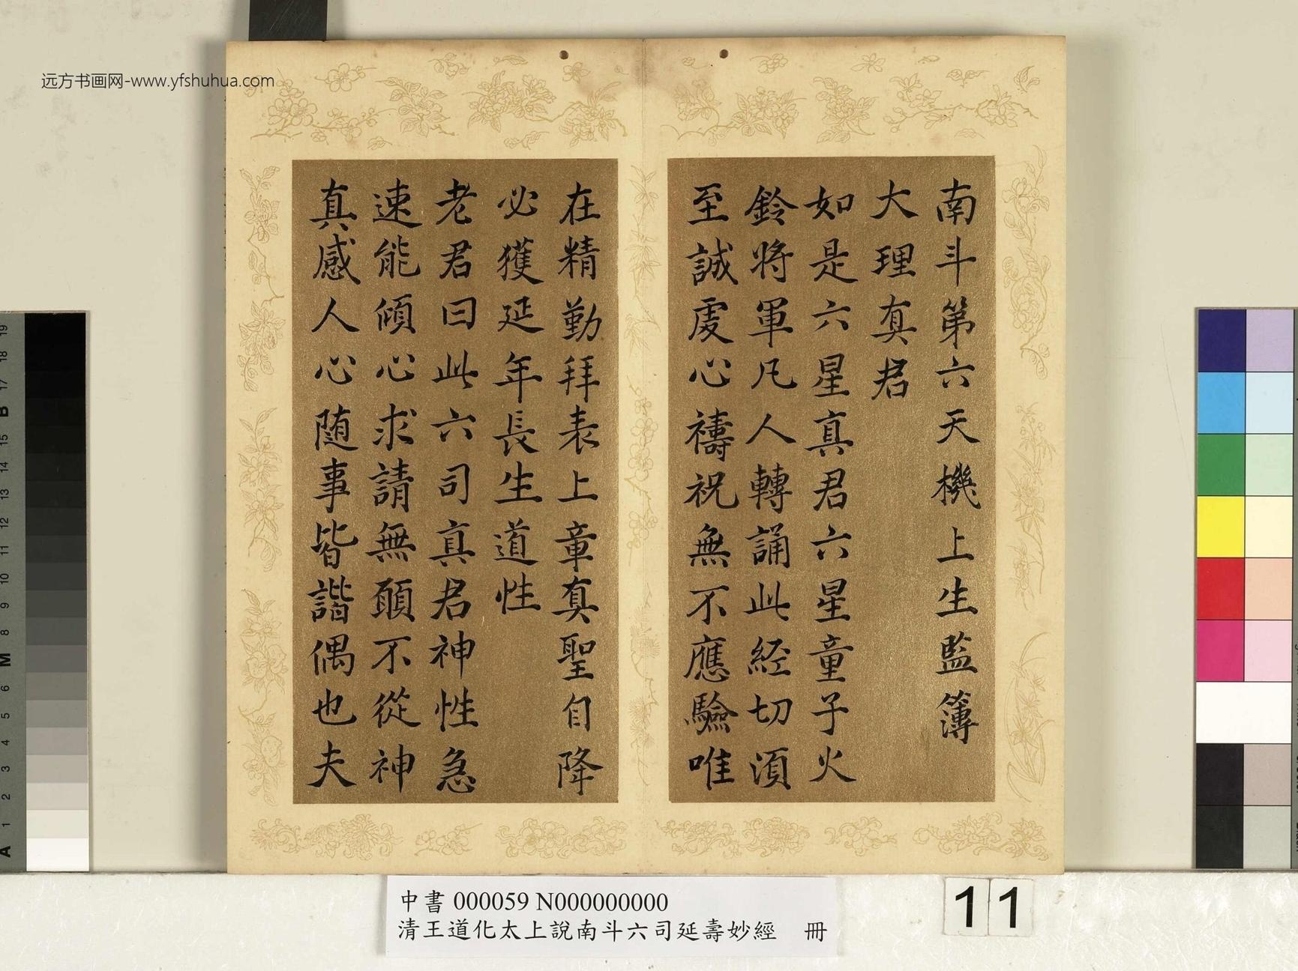 远方书画网-www.yfshuhua.com
南斗第六天機上生監簿
大理真君
如是六星真君六星童子火
鈴將軍凡人轉誦此経切湏
至誠虔心禱祝無不應驗唯
在精勤拜表上章真聖自降
必獲延年長生道性
老君曰此六司真君神性急
速能傾心求請無願不從神
真感人心随事皆諧偶也夫
中書 000059 N000000000
清王道化太上說南斗六司延壽妙經 冊
11